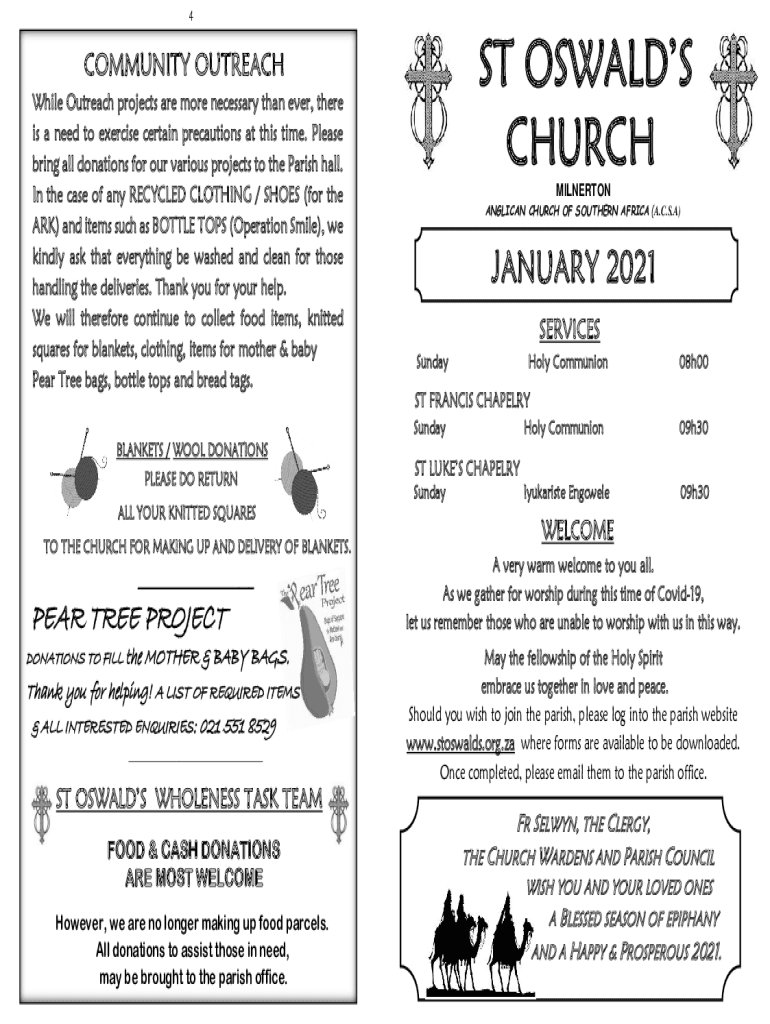 4
COMMUNITY OUTREACH
While Outreach projects are more necessary than ever, there
is a need to exercise certain precautions at this time. Please
bring all donations for our various projects to the Parish hall.
In the case of any RECYCLED CLOTHING / SHOES (for the
ARK) and items such as BOTTLE TOPS (Operation Smile), we
kindly ask that everything be washed and clean for those
handling the deliveries. Thank you for your help.
We will therefore continue to collect food items, knitted
squares for blankets, clothing, items for mother & baby
Pear Tree bags, bottle tops and bread tags.
BLANKETS / WOOL DONATIONS
PLEASE DO RETURN
ALL YOUR KNITTED SQUARES
TO THE CHURCH FOR MAKING UP AND DELIVERY OF BLANKETS.
The Pear Tree
Project
PEAR TREE PROJECT
DONATIONS TO FILL the MOTHER & BABY BAGS.
Thank you for helping! A LIST OF REQUIRED ITEMS
& ALL INTERESTED ENQUIRIES: 021 551 8529
ST OSWALD'S WHOLENESS TASK TEAM
FOOD & CASH DONATIONS
ARE MOST WELCOME
However, we are no longer making up food parcels.
All donations to assist those in need,
may be brought to the parish office.
ST OSWALD'S
CHURCH
MILNERTON
ANGLICAN CHURCH OF SOUTHERN AFRICA (A.C.S.A)
JANUARY 2021
SERVICES
Sunday Holy Communion 08h00
ST FRANCIS CHAPELRY
Sunday Holy Communion 09h30
ST LUKE'S CHAPELRY
Sunday Iyukariste Engowele 09h30
WELCOME
A very warm welcome to you all.
As we gather for worship during this time of Covid-19,
let us remember those who are unable to worship with us in this way.
May the fellowship of the Holy Spirit
embrace us together in love and peace.
Should you wish to join the parish, please log into the parish website
www.stoswalds.org.za where forms are available to be downloaded.
Once completed, please email them to the parish office.
FR SELWYN, THE CLERGY,
THE CHURCH WARDENS AND PARISH COUNCIL
WISH YOU AND YOUR LOVED ONES
A BLESSED SEASON OF EPIPHANY
AND A HAPPY & PROSPEROUS 2021.